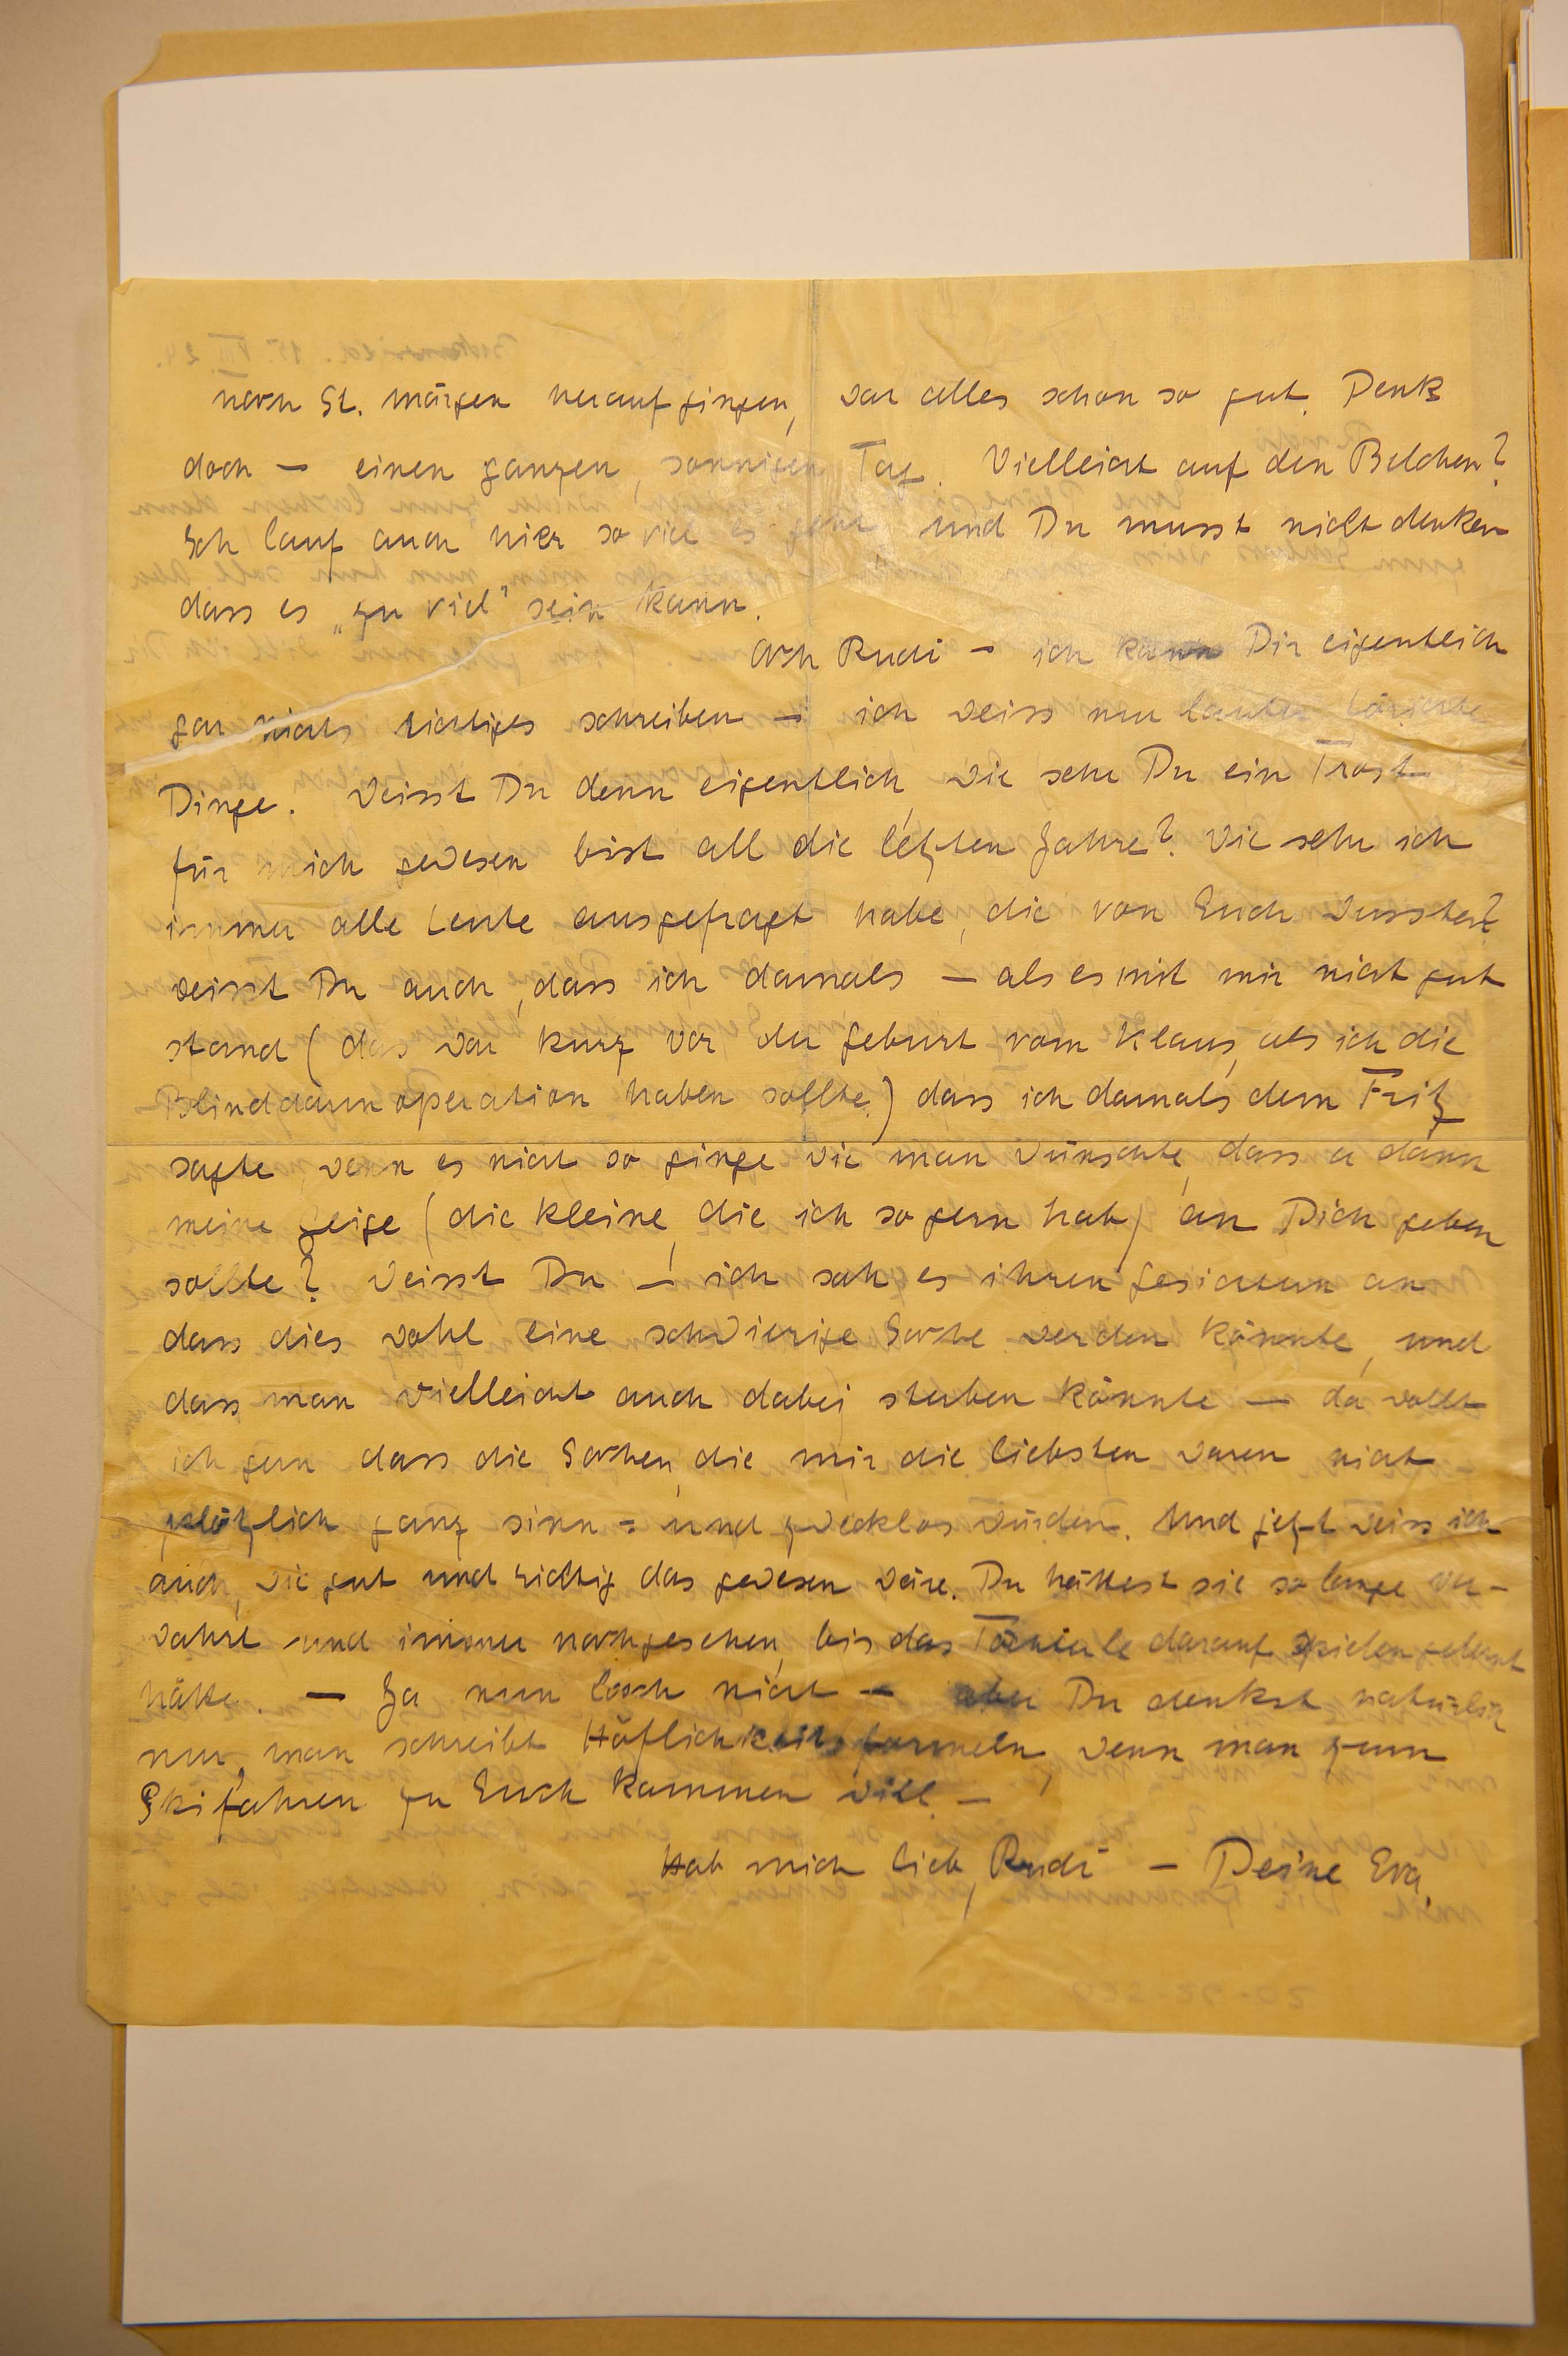 nach St. Märgen heraufgingen, war alles schon so gut. Denk
doch — einen ganzen, sonnigen Tag. Vielleicht auf den Belchen?
Ich lauf auch hier so viel es geht und Du musst nicht denken
dass es „zu viel" sein kann.
Ach Rudi — ich kann Dir eigentlich
gar nichts richtiges schreiben — ich weiss nur lauter törichte
Dinge. Weisst Du denn eigentlich, wie sehr Du ein Trost
für mich gewesen bist all die letzten Jahre? Wie sehr ich
immer alle Leute ausgefragt habe, die von Euch wussten?
Weisst Du auch, dass ich damals — als es mit mir nicht gut
stand (das war kurz vor der Geburt vom Klaus, als ich die
Blinddarmoperation haben sollte) dass ich damals dem Fritz
sagte, wenn es nicht so ginge wie man wünschte, dass er dann
meine Geige (die kleine, die ich so gern hab) an Dich geben
sollte? Weisst Du — ich sah es ihren Gesichtern an
dass dies wohl eine schwierige Sache werden könnte, und
dass man vielleicht auch dabei sterben könnte — da wollt
ich gern dass die Sachen, die mir die liebsten waren nicht
plötzlich ganz sinn= und zwecklos würden. Und jetzt weiss ich
auch, wie gut und richtig das gewesen wäre. Du hättest sie so lange ver-
wahrt und immer nachgesehen, bis das Töchterle darauf spielen gelernt
hätte. — Ja nun lach nicht — aber Du denkst natürlich
nur, man schreibt Höflichkeitsformeln, wenn man zum
Skifahren zu Euch kommen will. —
Hab mich lieb, Rudi — Deine Eva.